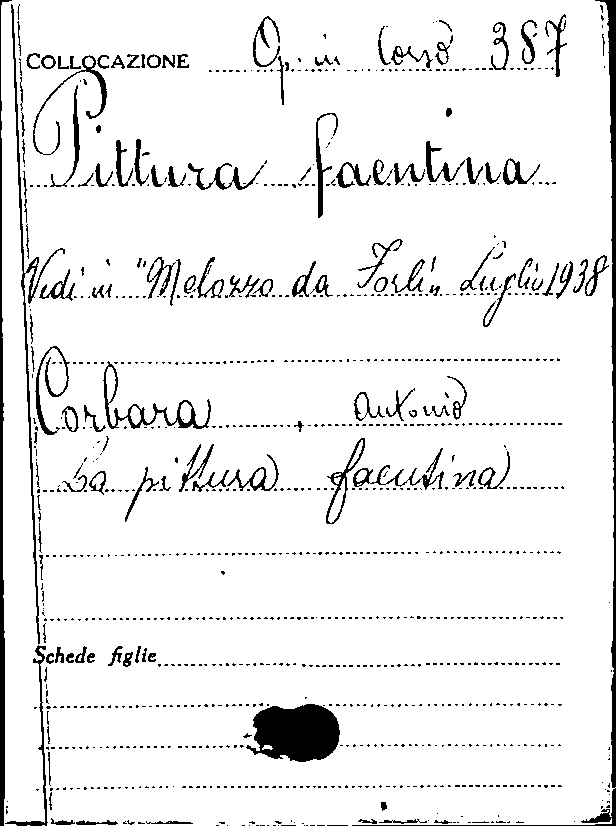 COLLOCAZIONE Op. in Corso 387
Pittura faentina
Vedi in "Melozzo da Forlì" Luglio 1938
Corbara, Antonio
La pittura faentina
Schede figlie